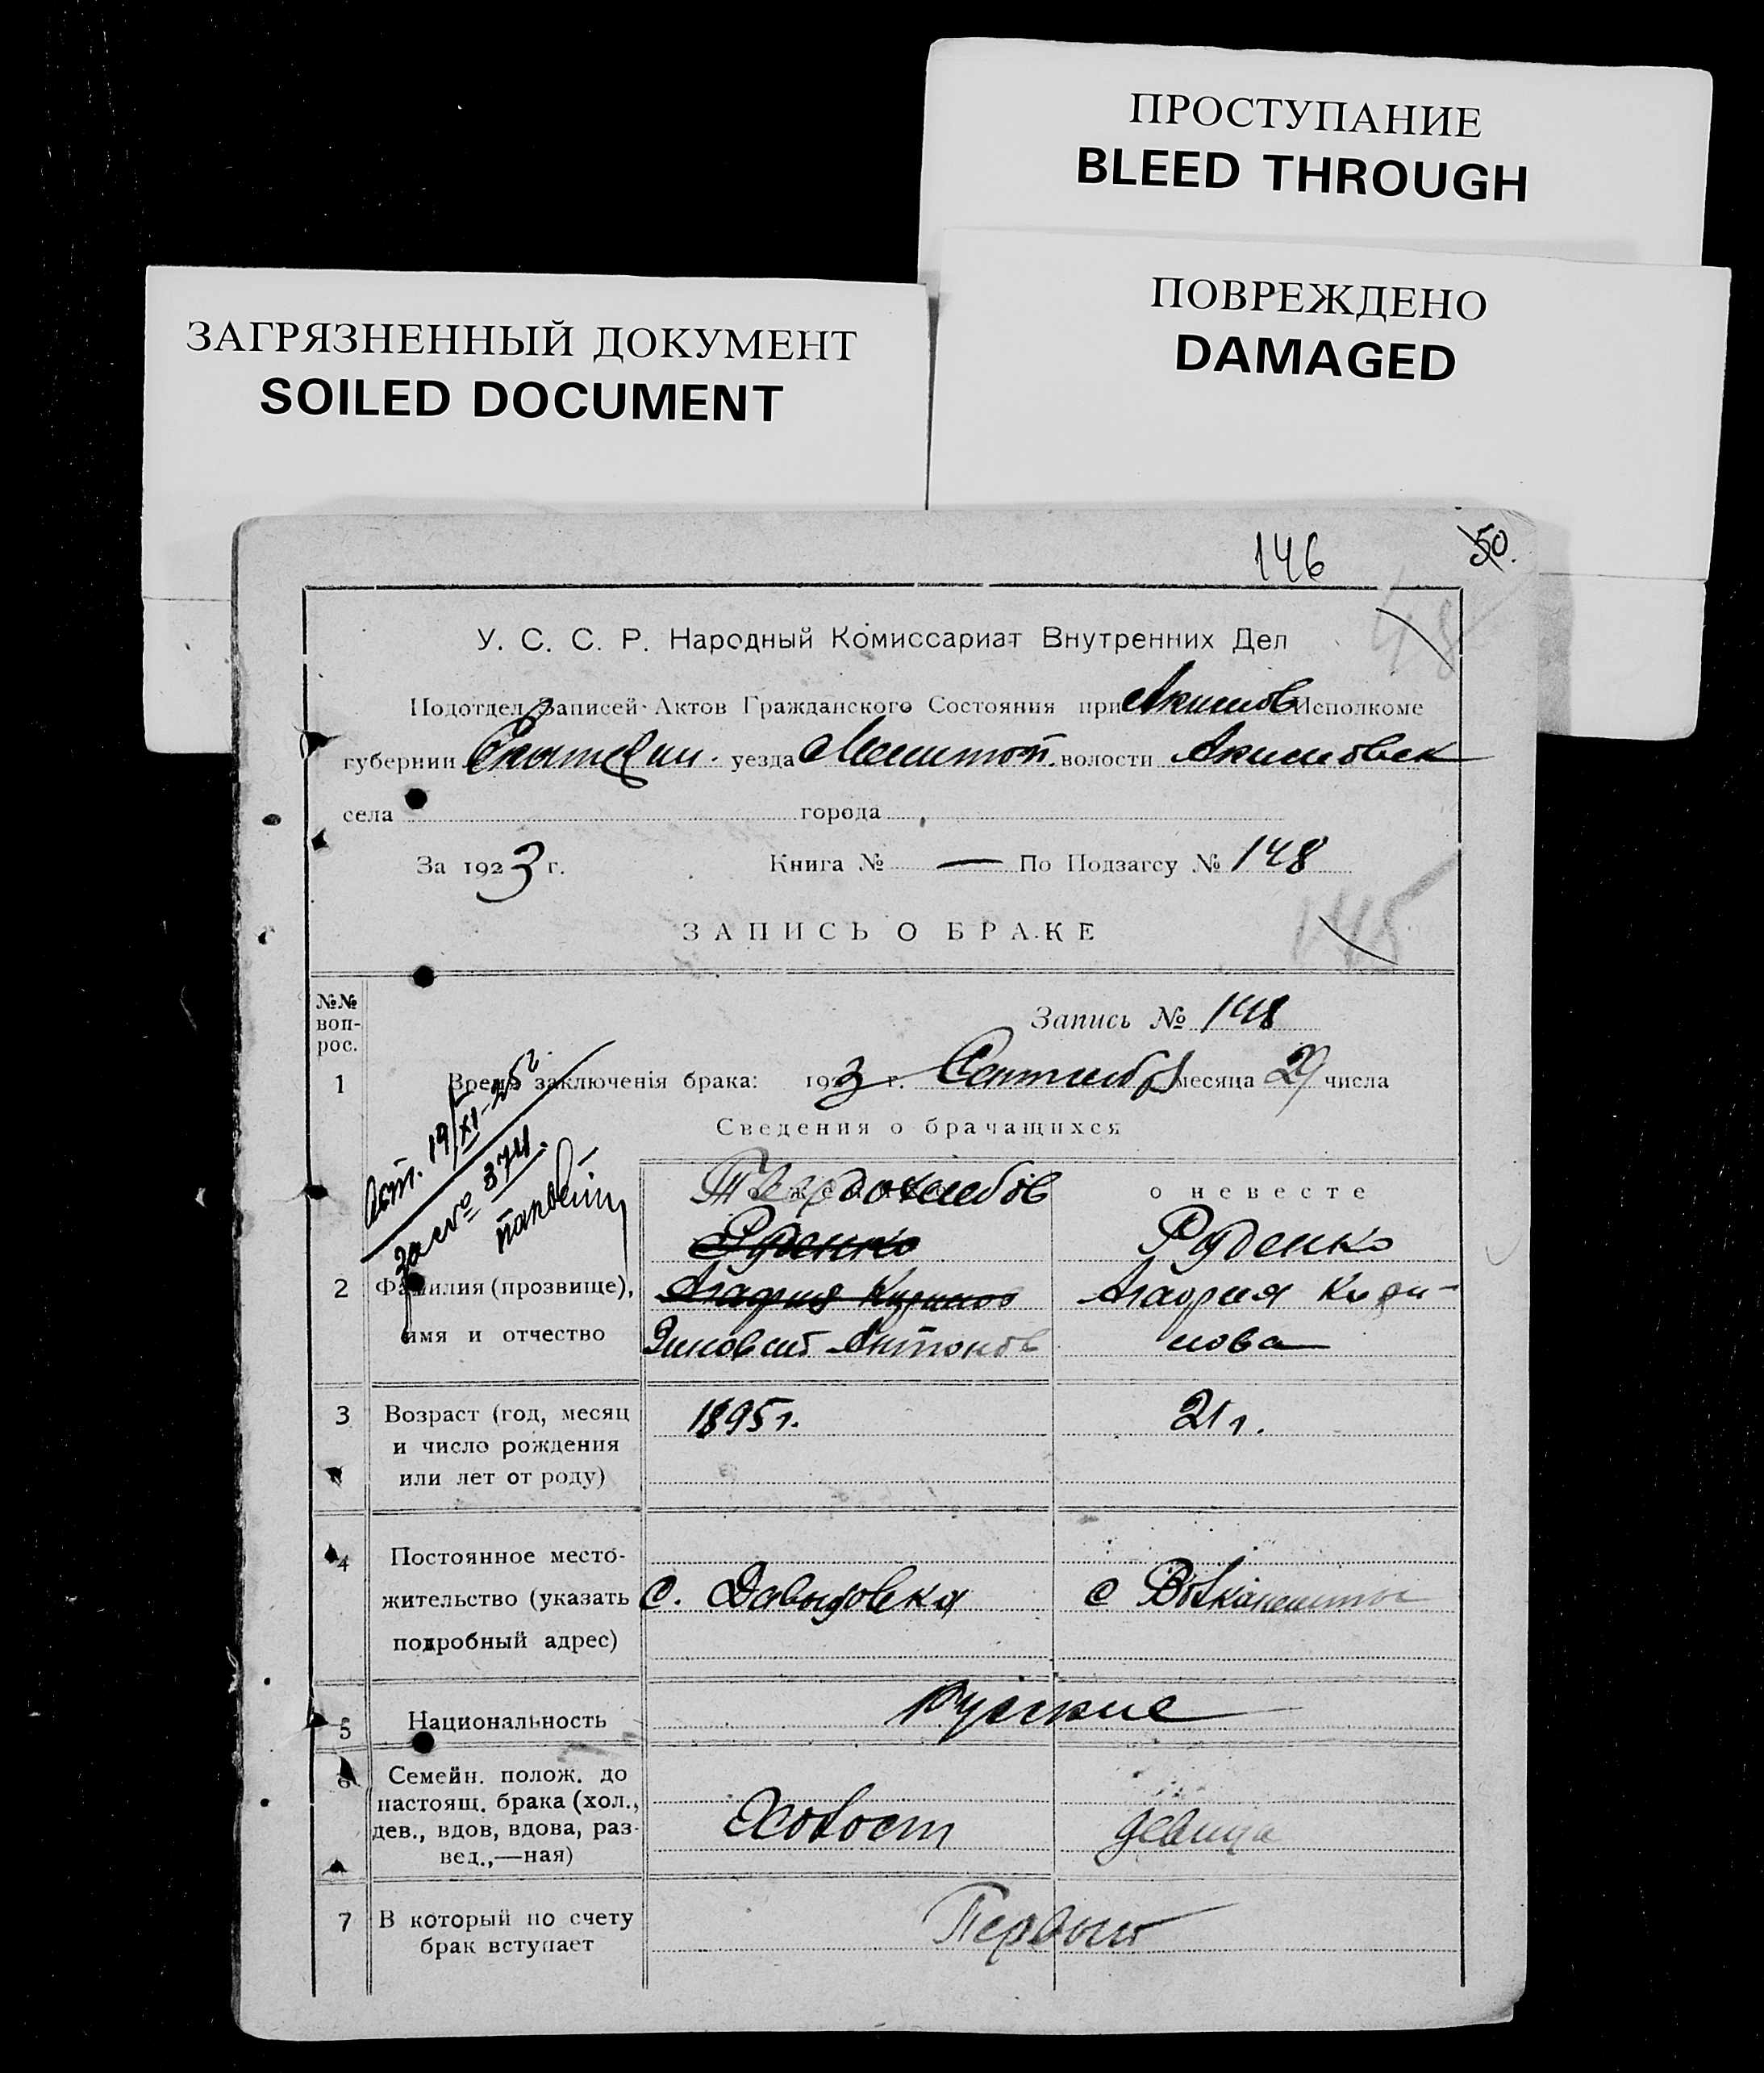 ПРОСТУПАНИЕ
BLEED THROUGH
ПОВРЕЖДЕНО
DAMAGED
ЗАГРЯЗНЕННЫЙ ДОКУМЕНТ
SOILED DOCUMENT
146 50.
48
У. С. С. Р. Народный Комиссариат Внутренних Дел
Подотдел Записей Актов Гражданского Состояния при Акимов Исполкоме
губернии уезда Мелитоп. волости Акимовск
села города
За 1923 г. Книга № — По Подзагсу № 148
145
ЗАПИСЬ О БРАКЕ
№№ воп-
рос.
Запись № 148
1 Время заключенія брака: 1923 г. Сентября месяца 29 числа
Сведения о брачащихся
за № 374.
о женихе о невесте
Твердохлебов
Руденко Руденко
2 Фамилия (прозвище), Агафия Кирилов Агафия Кири-
имя и отчество Зиновий Антонов лова
3 Возраст (год, месяц 1895 г. 21 г.
и число рождения
или лет от роду)
4 Постоянное место-
жительство (указать с. Давыдовка с
подробный адрес)
5 Национальность русские
6 Семейн. полож. до
настоящ. брака (хол.,
дев., вдов, вдова, раз-
вед.,—ная) Холост девица
7 В который по счету
брак вступает Первый